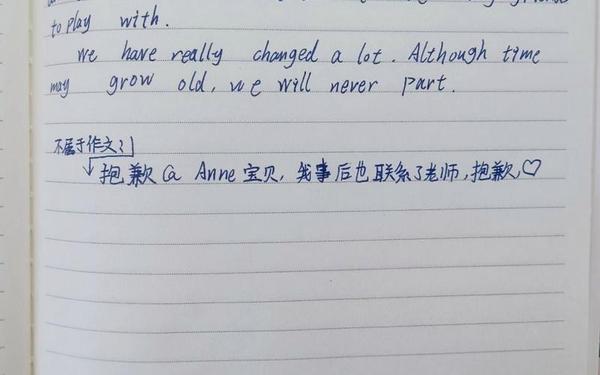 to play with.
we have really changed a lot. Although time
may grow old, we will never part.
不属于作文
抱歉 @ Anne 宝贝, 我事后也联系了老师, 抱歉, ♡